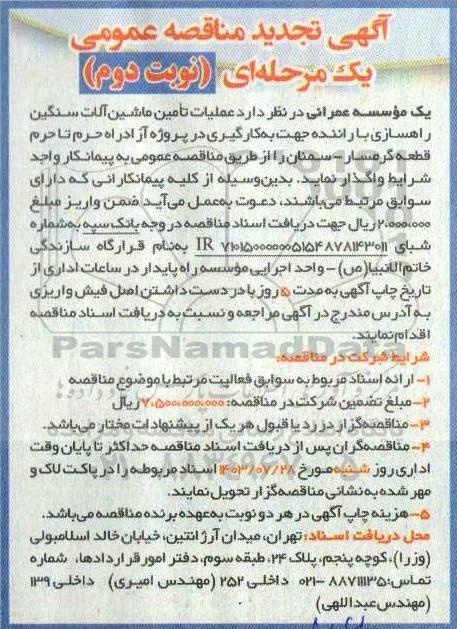 آگهی تجدید مناقصه عمومی
یک مرحله‌ای (نوبت دوم)
یک مؤسسه عمرانی در نظر دارد عملیات تأمین ماشین‌آلات سنگین
راهسازی با راننده جهت به‌کارگیری در پروژه آزادراه حرم تا حرم
قطعه گرمسار - سمنان را از طریق مناقصه عمومی به پیمانکار واجد
شرایط واگذار نماید. بدین‌وسیله از کلیه پیمانکارانی که دارای
سوابق مرتبط می‌باشند، دعوت به‌عمل می‌آید ضمن واریز مبلغ
۲،۰۰۰،۰۰۰ ریال جهت دریافت اسناد مناقصه در وجه بانک سپه به‌شماره
شبای IR ۷۱۰۱۵۰۰۰۰۰۰۰۵۱۵۴۸۷۸۱۴۳۰۱۱ به‌نام قرارگاه سازندگی
خاتم‌الانبیا(ص) - واحد اجرایی مؤسسه راه پایدار در ساعات اداری از
تاریخ چاپ آگهی به مدت ۵ روز با در دست داشتن اصل فیش واریزی
به آدرس مندرج در آگهی مراجعه و نسبت به دریافت اسناد مناقصه
اقدام نمایند.
ParsNamadData
شرایط شرکت در مناقصه:
۱- ارائه اسناد مربوط به سوابق فعالیت مرتبط با موضوع مناقصه
۲- مبلغ تضمین شرکت در مناقصه: ۷،۵۰۰،۰۰۰،۰۰۰ ریال
۳- مناقصه‌گزار در رد یا قبول هر یک از پیشنهادات مختار می‌باشد.
۴- مناقصه‌گران پس از دریافت اسناد مناقصه حداکثر تا پایان وقت
اداری روز شنبه مورخ ۱۴۰۳/۰۷/۲۸ اسناد مربوطه را در پاکت لاک و
مهر شده به نشانی مناقصه‌گزار تحویل نمایند.
۵- هزینه چاپ آگهی در هر دو نوبت به‌عهده برنده مناقصه می‌باشد.
محل دریافت اسناد: تهران، میدان آرژانتین، خیابان خالد اسلامبولی
(وزرا)، کوچه پنجم، پلاک ۲۴، طبقه سوم، دفتر امور قراردادها، شماره
تماس: ۸۸۷۱۱۱۳۵-۰۲۱ داخلی ۲۵۲ (مهندس امیری) داخلی ۱۳۹
(مهندس عبداللهی)